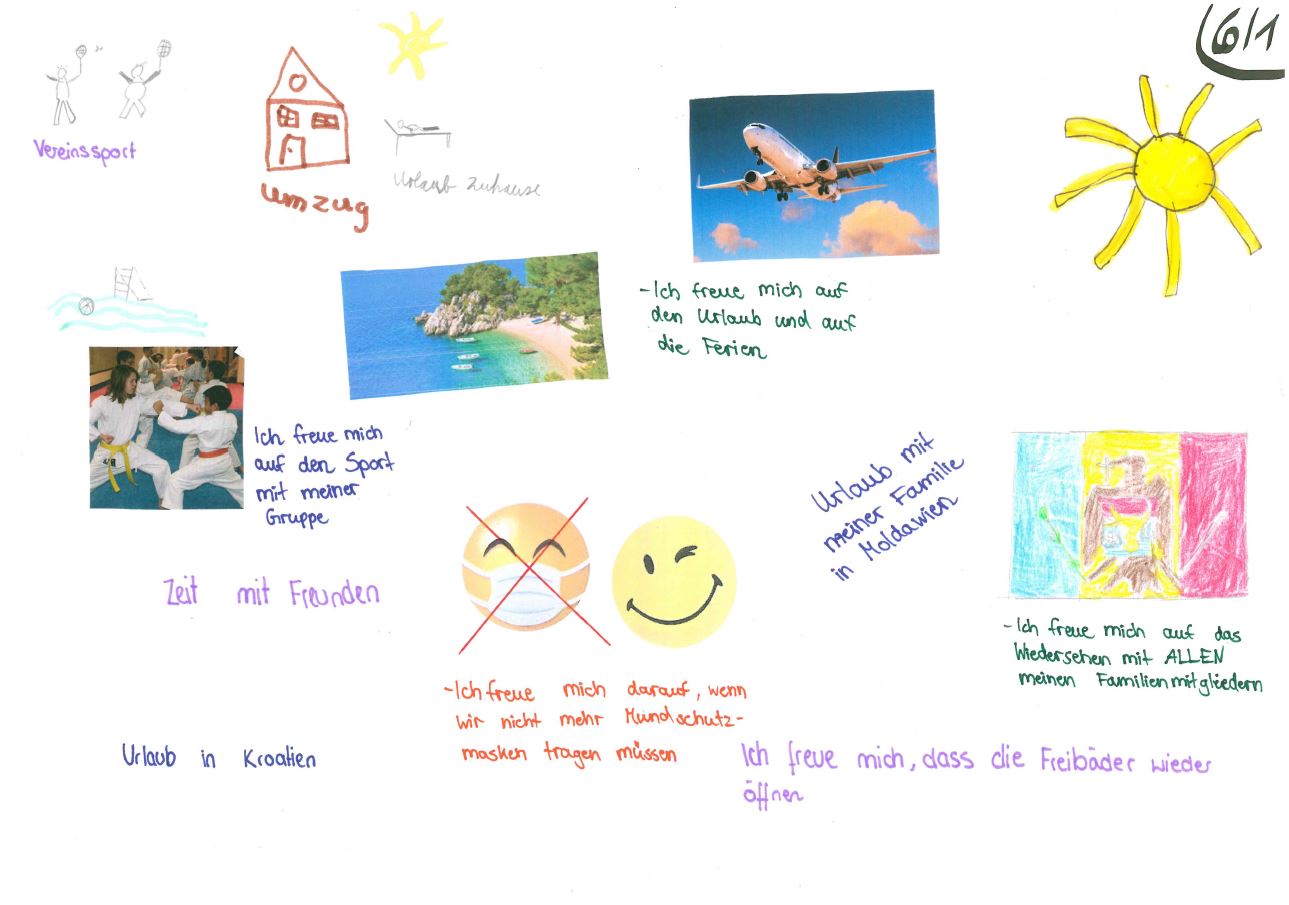 6/1
Vereinssport
Umzug
Urlaub zuhause
-Ich freue mich auf
den Urlaub und auf
die Ferien
Ich freue mich
auf den Sport
mit meiner
Gruppe
Urlaub mit
meiner Familie
in Moldawien
Zeit mit Freunden
-Ich freue mich auf das
Wiedersehen mit ALLEN
meinen Familienmitgliedern
-Ich freue mich darauf, wenn
wir nicht mehr Mundschutz-
masken tragen müssen
Urlaub in Kroatien
Ich freue mich, dass die Freibäder wieder
öffnen